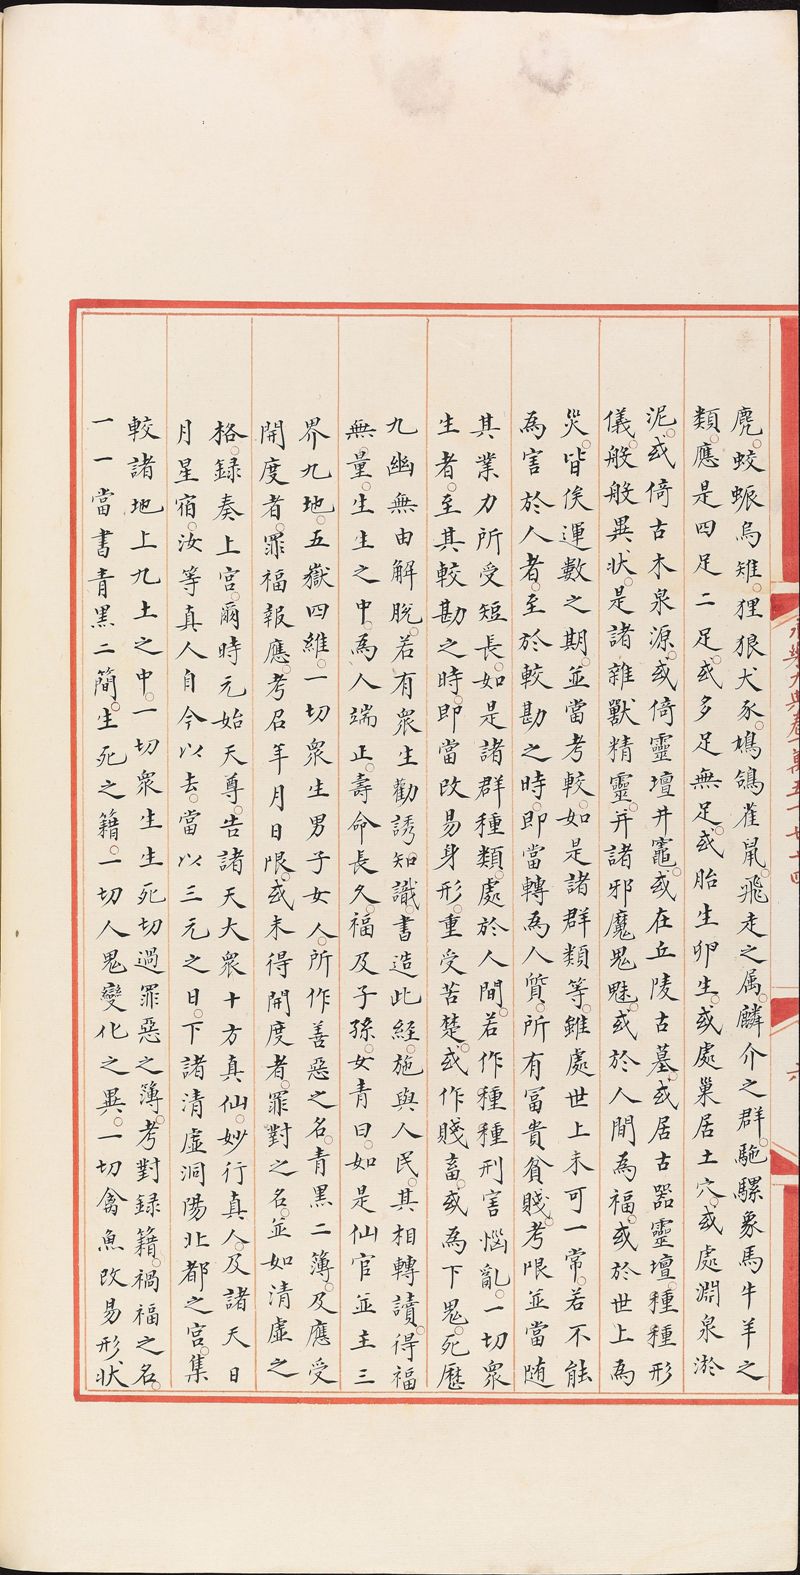 麂。蛟蜃烏雉。狸狼犬豕。鳩鴿雀鼠。飛走之属。麟介之群。駞騾象馬牛羊之
類。應是四足二足。或多足無足。或胎生卵生。或處巢居土穴。或處淵泉淤
泥。或倚古木泉源。或倚靈壇井竈。或在丘陵古墓。或居古器靈壇。種種形
儀。般般異状。是諸雜獸精靈。并諸邪魔鬼魅。或於人間為福。或於世上為
災。皆俟運數之期。並當考較。如是諸群類等。雖處世上未可一常。若不能
為害於人者。至於較勘之時。即當轉為人質。所有富貴貧賤。考限並當随
其業力所受短長。如是諸群種類。處於人間。若作種種刑害惱亂。一切衆
生者。至其較勘之時。即當改易身形。重受苦楚。或作賤畜。或為下鬼。死歷
九幽無由解脫。若有衆生勸誘知識。書造此經。施與人民。其相轉讀。得福
無量。生生之中。為人端正。壽命長久。福及子孫。女青曰。如是仙官並主三
界九地。五嶽四維。一切衆生男子女人。所作善惡之名。青黑二簿。及應受
開度者。罪福報應。考召年月日限。或未得開度者。罪對之名。並如清虛之
格。録奏上宫。爾時元始天尊。告諸天大衆十方真仙。妙行真人。及諸天日
月星宿。汝等真人自今以去。當以三元之日。下諸清虛洞陽北都之宫。集
較諸地上九土之中。一切衆生生死切過罪惡之簿。考對録籍。禍福之名。
一一當書青黑二簡。生死之籍。一切人鬼變化之異。一切禽魚改易形状
永樂大典卷一萬五千
六